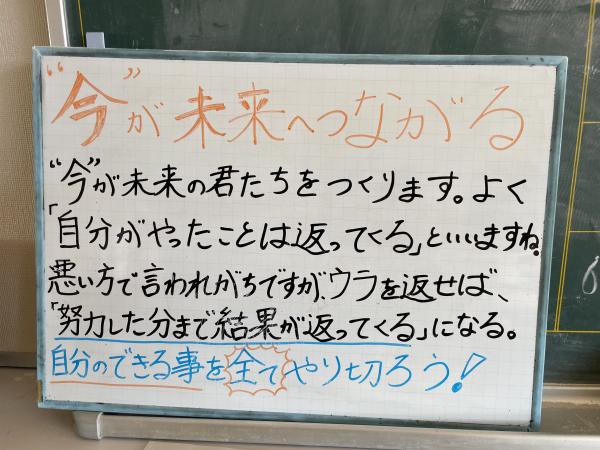 “今”が未来へつながる
“今”が未来の君たちをつくります。よく
「自分がやったことは返ってくる」といいますね。
悪い方で言われがちですが、ウラを返せば、
「努力した分まで結果が返ってくる」になる。
自分のできる事を全てやり切ろう!